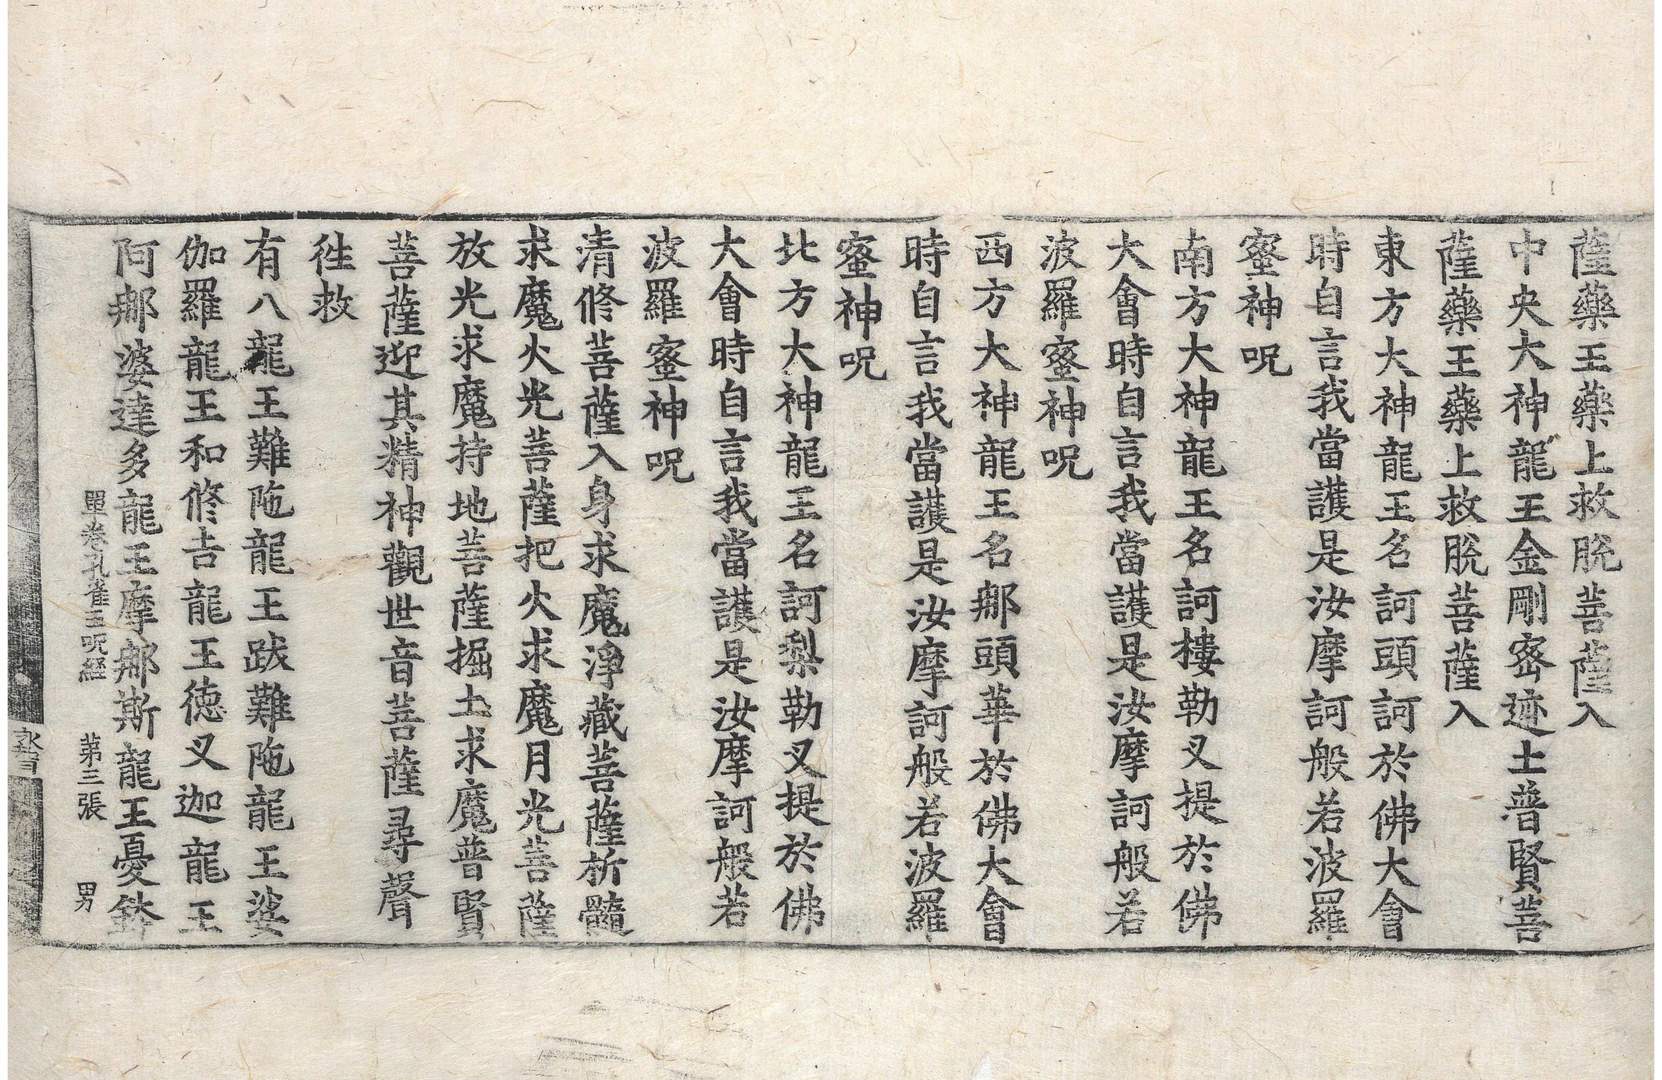 薩藥王藥上救脫菩薩入
中央大神龍王金剛密迹士普賢菩
薩藥王藥上救脫菩薩入
東方大神龍王名訶頭訶於佛大會
時自言我當護是汝摩訶般若波羅
蜜神呪
南方大神龍王名訶樓勒叉提於佛
大會時自言我當護是汝摩訶般若
波羅蜜神呪
西方大神龍王名那頭華於佛大會
時自言我當護是汝摩訶般若波羅
蜜神呪
北方大神龍王名訶梨勒叉提於佛
大會時自言我當護是汝摩訶般若
波羅蜜神呪
清修菩薩入身求魔淨藏菩薩析髓
求魔火光菩薩把火求魔月光菩薩
放光求魔持地菩薩掘土求魔普賢
菩薩迎其精神觀世音菩薩尋聲
徃救
有八龍王難陁龍王跋難陁龍王娑
伽羅龍王和修吉龍王德叉迦龍王
阿那婆達多龍王摩那斯龍王憂鉢
單卷孔雀王呪經 苐三張 男